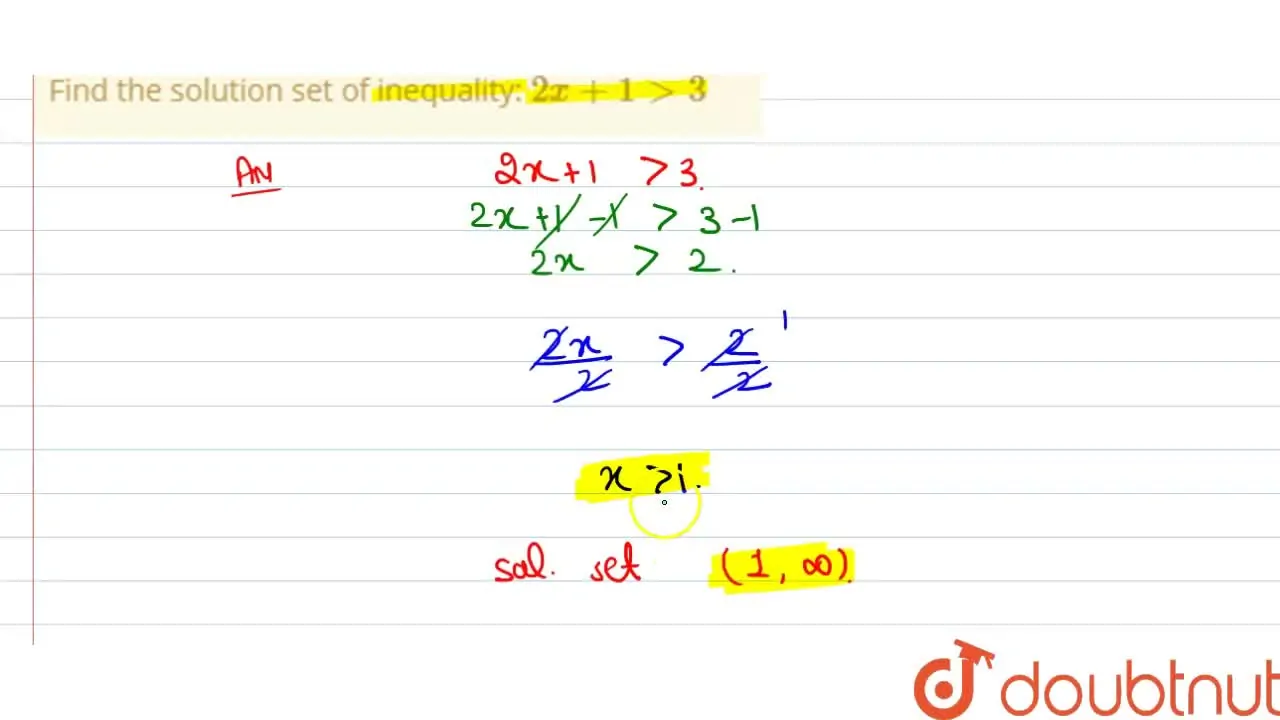 Find the solution set of inequality: 2x + 1 > 3
AM
2x+1 > 3.
2x+1 -1 > 3-1
2x > 2.
2x/2 > 2/2 1
x > 1.
sol. set (1, ∞)
doubtnut